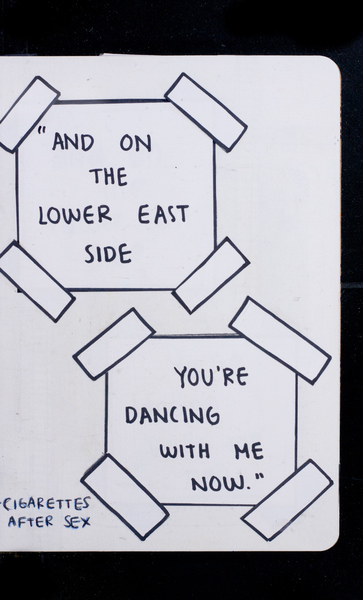 "AND ON
THE
LOWER EAST
SIDE
YOU'RE
DANCING
WITH ME
NOW."
-CIGARETTES
AFTER SEX